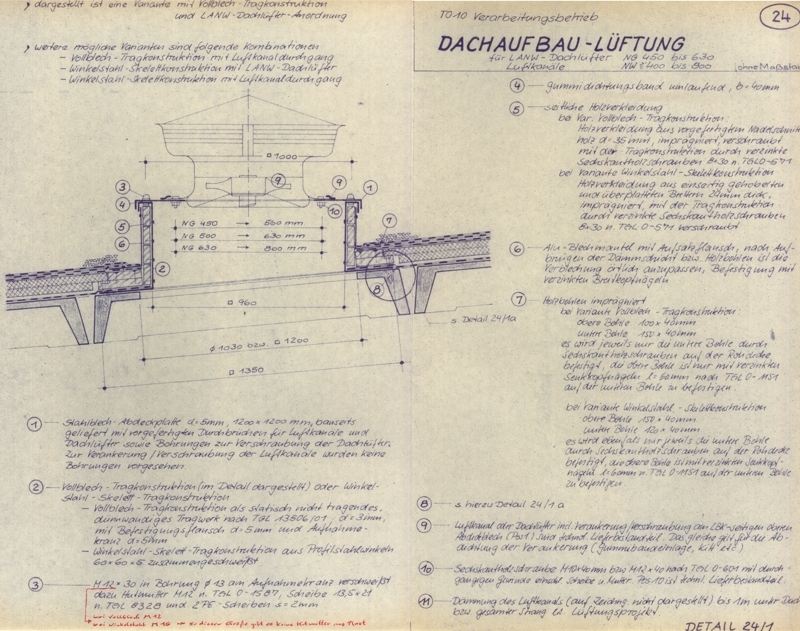 ) dargestellt ist eine Variante mit Vollblech-Tragkonstruktion
und LANW-Dachlüfter-Anordnung
) weitere mögliche Varianten sind folgende Kombinationen
- Vollblech-Tragkonstruktion mit Luftkanaldurchgang
- Winkelstahl-Skelettkonstruktion mit LANW-Dachlüfter
- Winkelstahl-Skelettkonstruktion mit Luftkanaldurchgang
□ 1000
3
4
5
6
2
9
9
10
1
7
8
NG 450 → 560 mm
NG 500 → 630 mm
NG 630 → 800 mm
□ 960
∅ 1030 bzw. □ 1200
□ 1350
s. Detail 24/1a
1 Stahlblech-Abdeckplatte d=5mm, 1200×1200 mm, bauseits
geliefert mit vorgefertigten Durchbrüchen für Luftkanäle und
Dachlüfter sowie Bohrungen zur Verschraubung der Dachlüfter.
Zur Verankerung/Verschraubung der Luftkanäle wurden keine
Bohrungen vorgesehen.
2 Vollblech-Tragkonstruktion (im Detail dargestellt) oder Winkel-
stahl-Skelett-Tragkonstruktion
- Vollblech-Tragkonstruktion als statisch nicht tragendes,
dünnwandiges Tragwerk nach TGL 13506/01 d=3mm,
mit Befestigungsflansch d=5mm und Aufnahme-
kranz d=5mm
- Winkelstahl-Skelett-Tragkonstruktion aus Profilstahlwinkeln
60×60×5 zusammengeschweißt
3 M12×30 in Bohrung ∅ 13 am Aufnahmekranz verschweißt
dazu Hutmutter M12 n. TGL 0-1587, Scheibe 13,5×21
n. TGL 8328 und 2 PE-Scheiben s=2mm
TO-10 Verarbeitungsbetrieb
24
DACHAUFBAU-LÜFTUNG
für LANW-Dachlüfter NG 450 bis 630
Luftkanäle NW 400 bis 800
ohne Maßsta
4 Gummidichtungsband umlaufend, b=40mm
5 seitliche Holzverkleidung
bei Var. Vollblech-Tragkonstruktion
Holzverkleidung aus vorgefertigtem Nadelschnitt-
holz d=35mm, imprägniert, verschraubt
mit der Tragkonstruktion durch verzinkte
Sechskantholzschrauben 8×30 n. TGL 0-571
bei Variante Winkelstahl-Skelettkonstruktion
Holzverkleidung aus einseitig gehobelten
und überplatteten Brettern 22mm dick,
imprägniert, mit der Tragkonstruktion
durch verzinkte Sechskantholzschrauben
8×30 n. TGL 0-571 verschraubt
6 Alu-Blechmantel mit Aufsatzflansch, nach Auf-
bringen der Dämmschicht bzw. Holzbohlen ist die
Verblechung örtlich anzupassen, Befestigung mit
verzinkten Breitkopfnägeln
7 Holzbohlen imprägniert
bei Variante Vollblech-Tragkonstruktion
obere Bohle 100×40mm
untere Bohle 150×40mm
es wird jeweils nur die untere Bohle durch
Sechskantholzschrauben auf der Rohdecke
befestigt, die obere Bohle ist nur mit verzinkten
Senkkopfnägeln l=60mm nach TGL 0-1151
auf der unteren Bohle zu befestigen.
bei Variante Winkelstahl-Skelettkonstruktion
obere Bohle 150×40mm
untere Bohle 120×40mm
es wird ebenfalls nur jeweils die untere Bohle
durch Sechskantholzschrauben auf der Rohdecke
befestigt, die obere Bohle ist mit verzinkten Senkkopf-
nägeln l=60mm n. TGL 0-1151 auf der unteren Bohle
zu befestigen
8 s. hierzu Detail 24/1a
9 Luftkanal oder Dachlüfter incl. Verankerung/Verschraubung am LBK-seitigen oberen
Abdeckblech (Pos 1) sind Lieferbestandteil. Das gleiche gilt für die Ab-
dichtung der Verankerung (Gummibandeinlage, Kitt etc.)
10 Sechskantholzschraube M10×40mm bzw M12×40 nach TGL 0-601 mit durch-
gängigem Gewinde einschl. Scheibe u. Mutter. Pos 10 ist Lieferbestandteil.
11 Dämmung des Luftkanals (auf Zeichng. nicht dargestellt) bis 1m unter Dach
bzw gesamter Strang lt. Lüftungsprojekt.
DETAIL 24/1